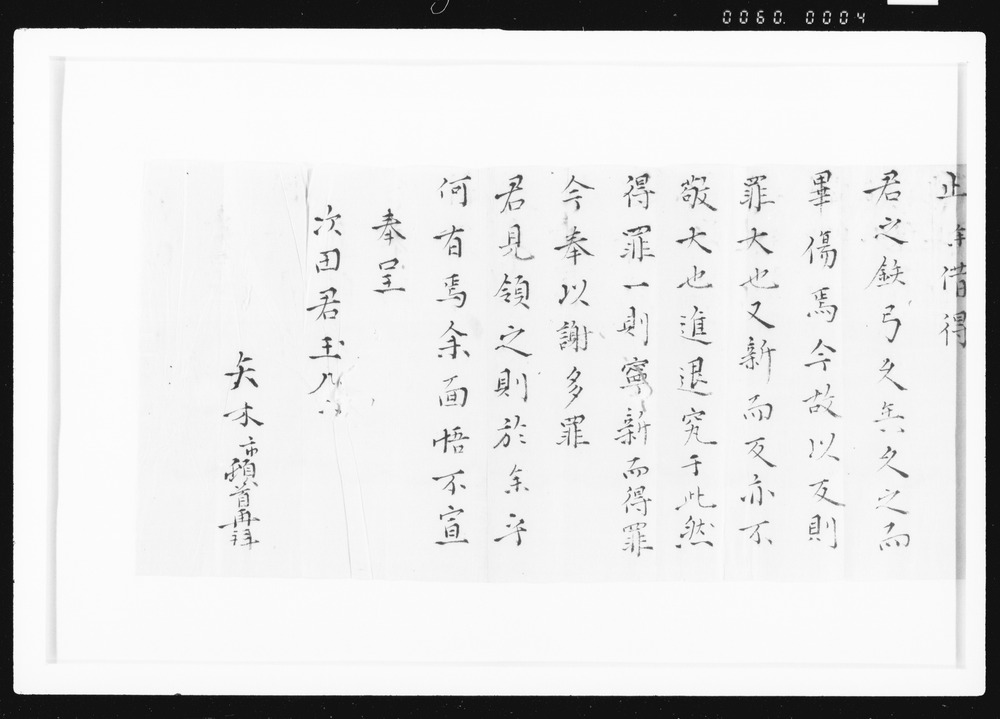 0060. 0004
止 余借得
君之鉄弓久矣久之而
畢傷焉今故以反則
罪大也又新而反亦不
敬大也進退究于此然
得罪一則寧新而得罪
今奉以謝多罪
君見領之則於余乎
何有焉余面悟不宣
奉呈
次田君玉几下
矢木 頓首再拜